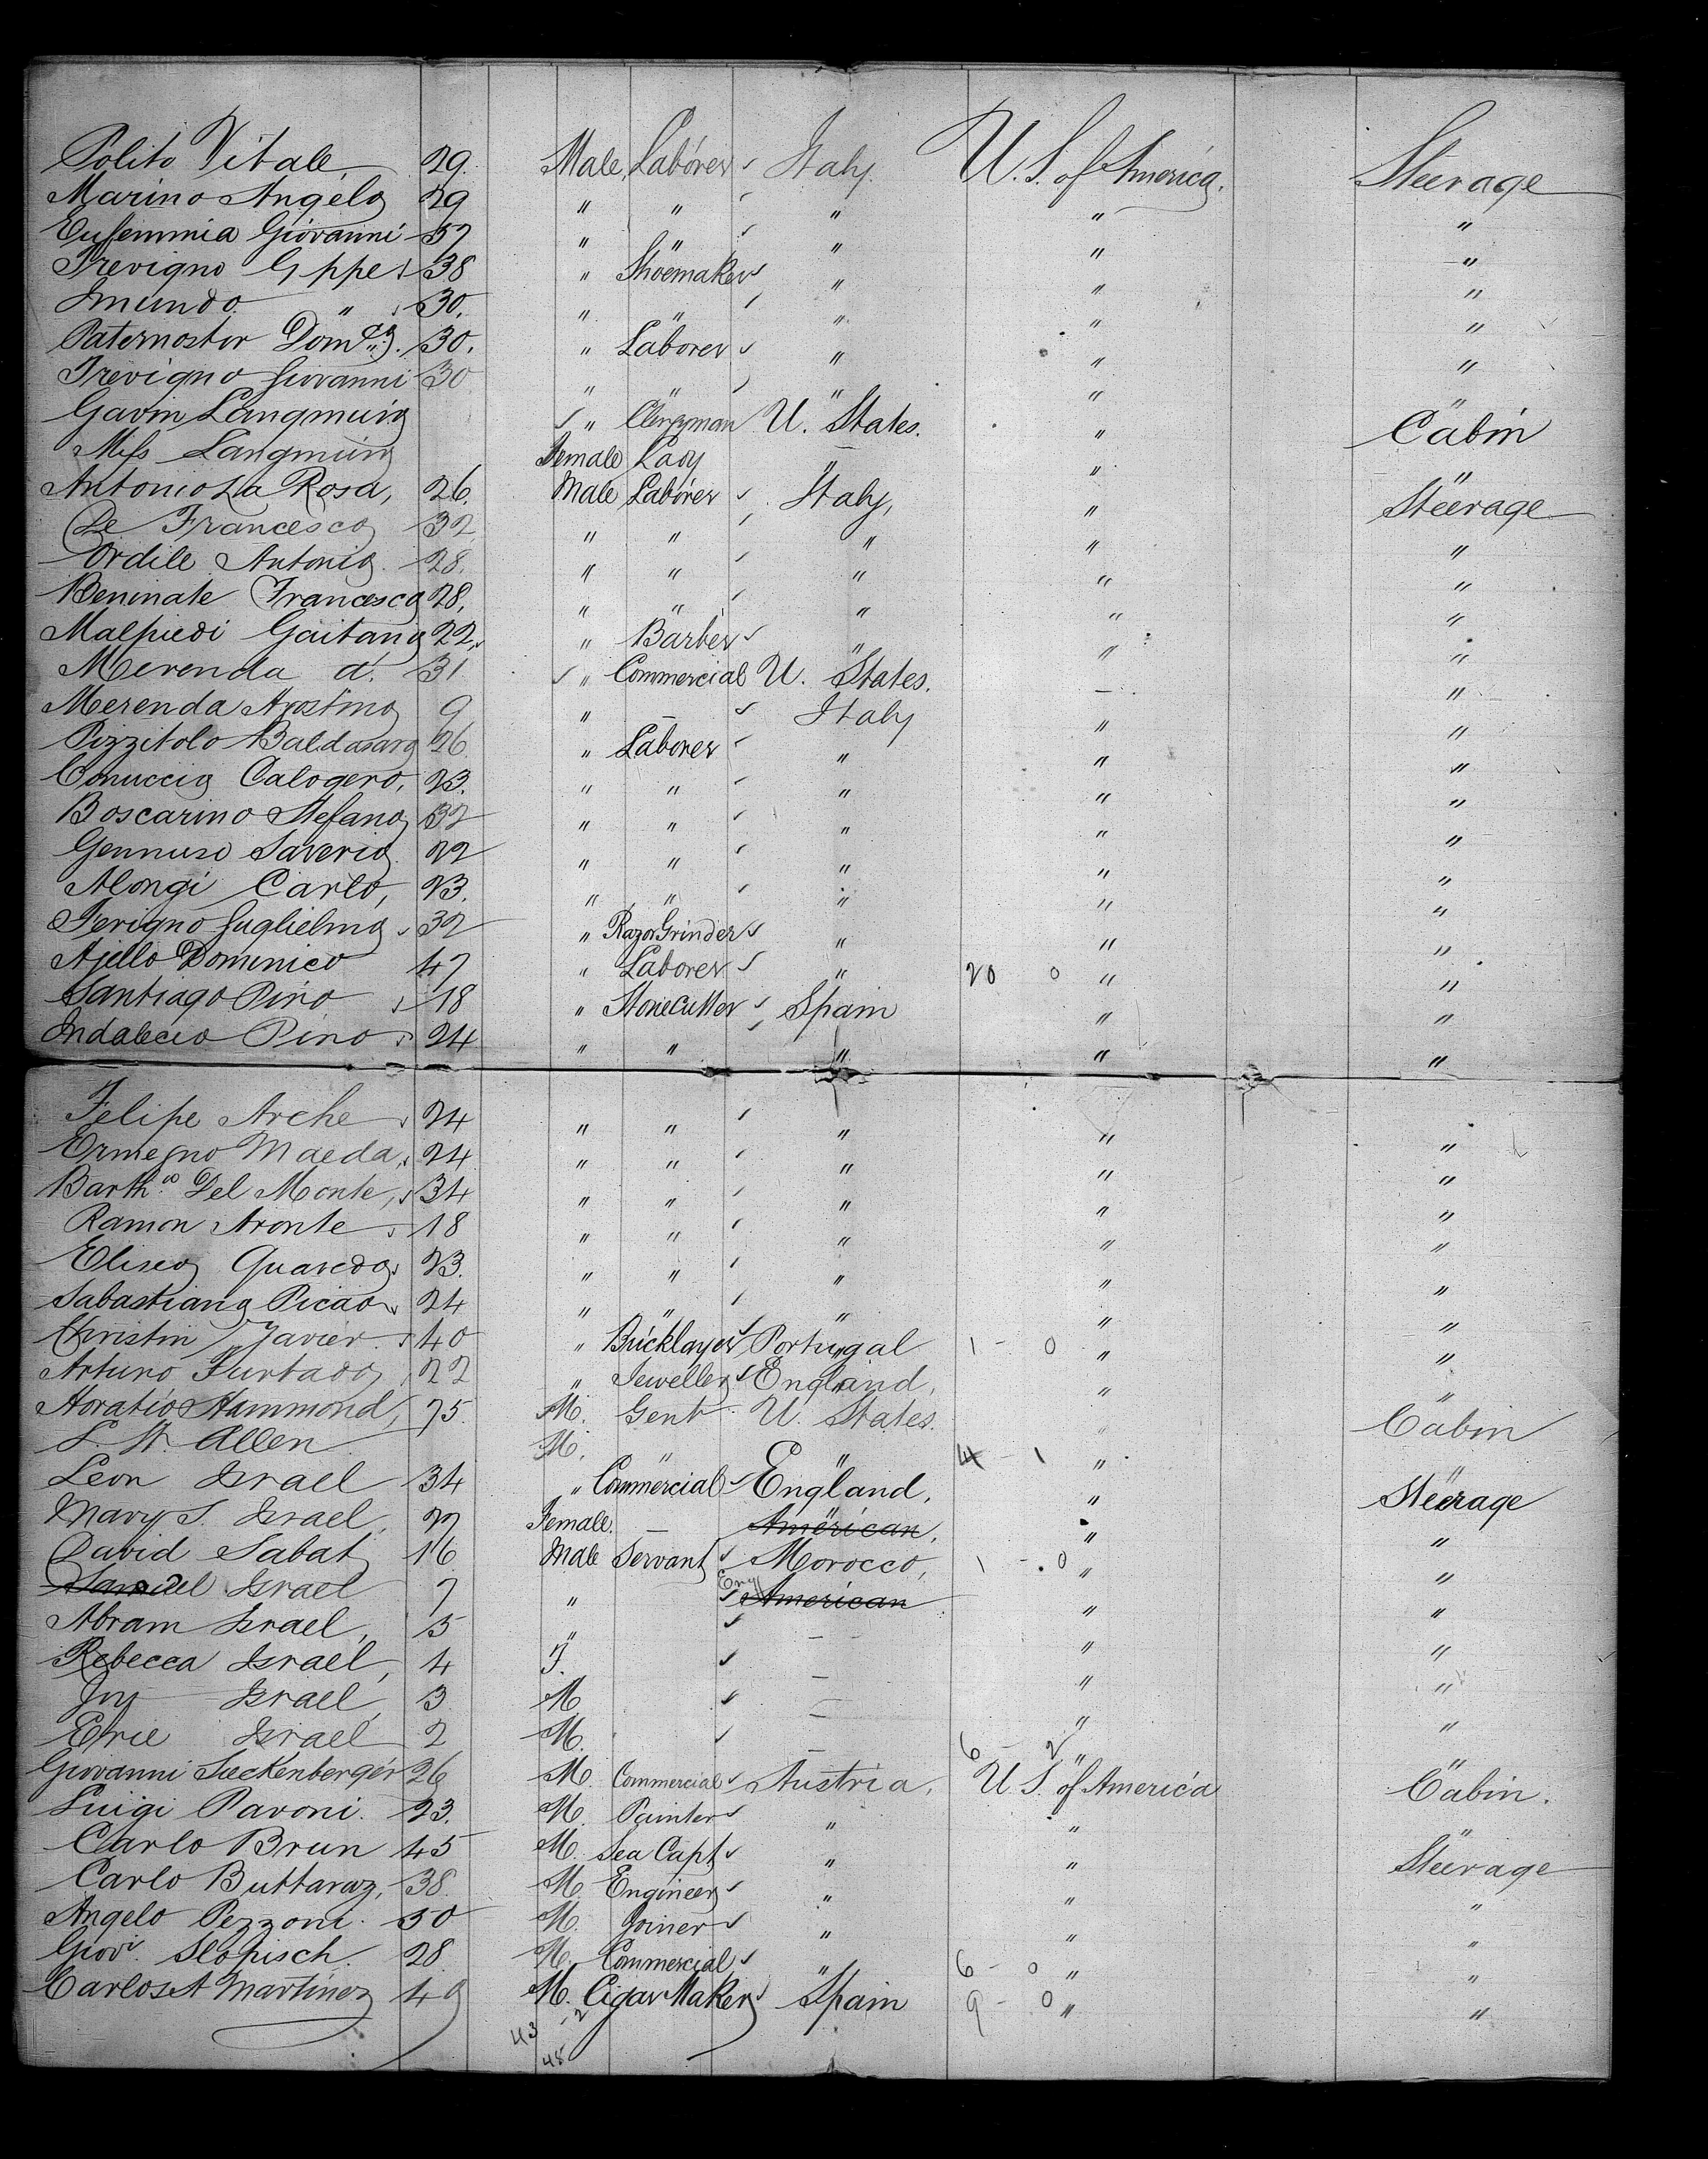 Polito Vitale 29. Male, Laborer Italy. U. S. of America. Steerage
Marino Angelo 29 " " " " "
Eufemmia Giovanni 37 " " " " "
Trevigno Gppe 38 " Shoemaker " " "
Imundo " 30. " " " " "
Paternostor Dom.co 30. " Laborer " " "
Trevigno Giovanni 30 " " " " "
Gavin Langmuir " Clergyman U. States. " Cabin
Miss Langmuir Female Lady " " "
Antonio La Rosa, 26. Male Laborer Italy, " Steerage
De Francesco 32 " " " " "
Ordile Antonio. 28. " " " " "
Beninate Francesco 28, " " " " "
Malpiedi Gaitano 22, " Barber " " "
Merenda A. 31 " Commercial U. States. — "
Merenda Agostino 9 " — Italy " "
Pizzitolo Baldasaro 26 " Laborer " " "
Conuccio Calogero, 23. " " " " "
Boscarino Stefano 32 " " " " "
Gennuso Saverio 22 " " " " "
Alongi Carlo, 23. " " " " "
Ferigno Guglielmo 32 " Razor Grinder " " "
Ajello Dominico 47 " Laborer " 20 0 " "
Santiago Pino 18 " Stonecutter Spain " "
Indalecio Pino 24 " " " " "
Felipe Arche 24 " " " " "
Ermegno Maeda, 24 " " " " "
Barth.o Del Monte, 34 " " " " "
Ramon Aronte 18 " " " " "
Eliseo Quavedo 23. " " " " "
Sabastiano Picao 24 " " " " "
Christin Javier 40 " Bricklayer Portugal 1 - 0 " "
Arturo Furtado 22 " Jeweller England, " "
Horatio Hammond, 75. M. Gent U. States. " Cabin
L. W. Allen M. " " 4 - 1 " "
Leon Israel 34 " Commercial England, " Steerage
Mary S. Israel, 27 Female. — American. " "
David Sabat 16 Male Servant Morocco, 1 - 0 " "
Samuel Israel 7 " Eng American " "
Abram Israel, 5 " — — " "
Rebecca Israel, 4 F. — " "
Joy Israel, 3 M — " "
Elrie Israel 2 M. — 6 - 2 " "
Giovanni Seckenberger 26 M. Commercial Austria, U. S. of America Cabin.
Luigi Pavoni. 23. M. Painter " " "
Carlo Brun 45 M. Sea Capt " " Steerage
Carlo Buttaraz, 38. M. Engineer " " "
Angelo Pezzoni. 30 M. Joiner " " "
Giovi Slopisch. 28 M. Commercial " 6 - 0 " "
Carlos A Martinez 49 M. Cigar Maker Spain 9 - 0 " "
43 - 2
45